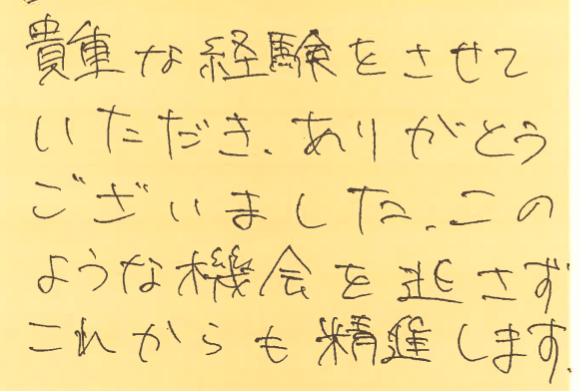 貴重な経験をさせて
いただき、ありがとう
ございました。この
ような機会を逃さず
これからも精進します。